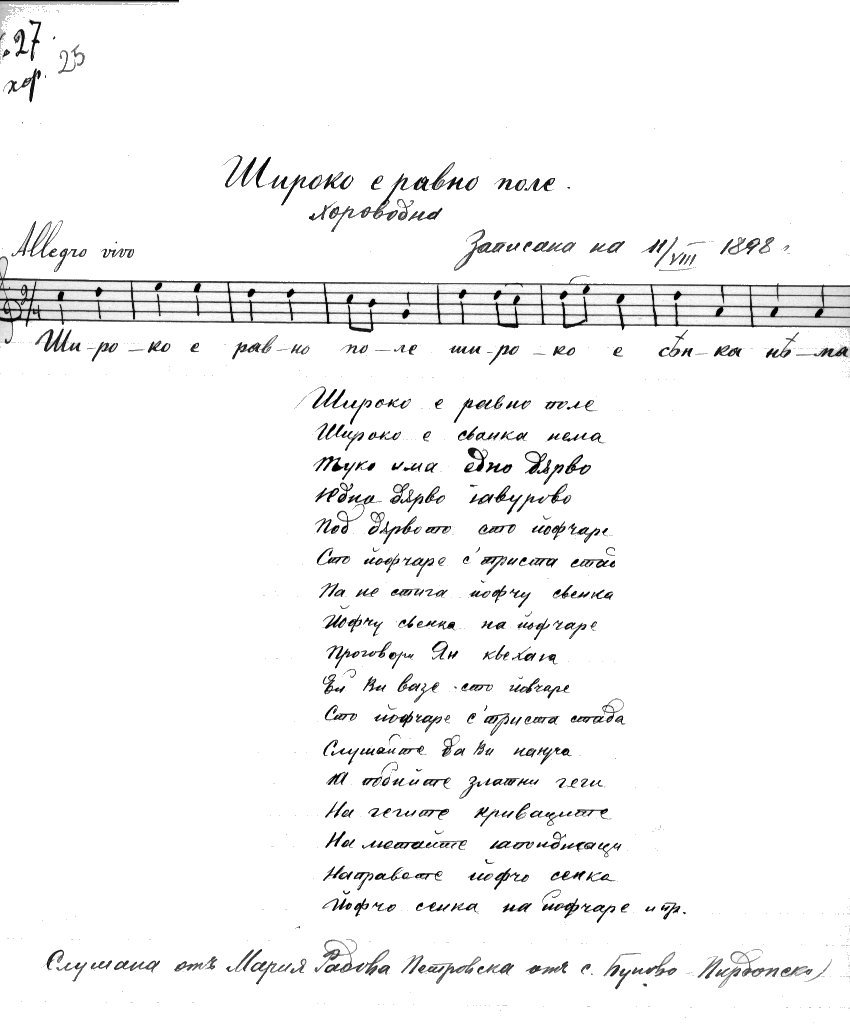 . 27.
хор. 25
Широко е равно поле.
хороводна
Allegro vivo
Записана на 11/VIII 1898.
2/4
Ши-ро-ко е рав-но по-ле ши-ро-ко е сѣн-ка нѣ-ма
Широко е равно поле
Широко е сванка нема
Туко има едно дярво
Една дярво явурово
Под дярвото сто йофчаре
Сто йофчаре с'триста стад
Па не стига йофчу свенка
Йофчу свенка на йофчаре
Проговори Ян кьехая
Ей Ви вазе сто йовчаре
Сто йофчаре с'триста стада
Слушайте да Ви науча
побийте златни геги
На гегите криваците
На метайте
Направете йофчо сенка
Йофчо сенка на йофчаре и пр.
Слушана отъ Мария Радова Петровска отъ с. Буново Пирдопско)